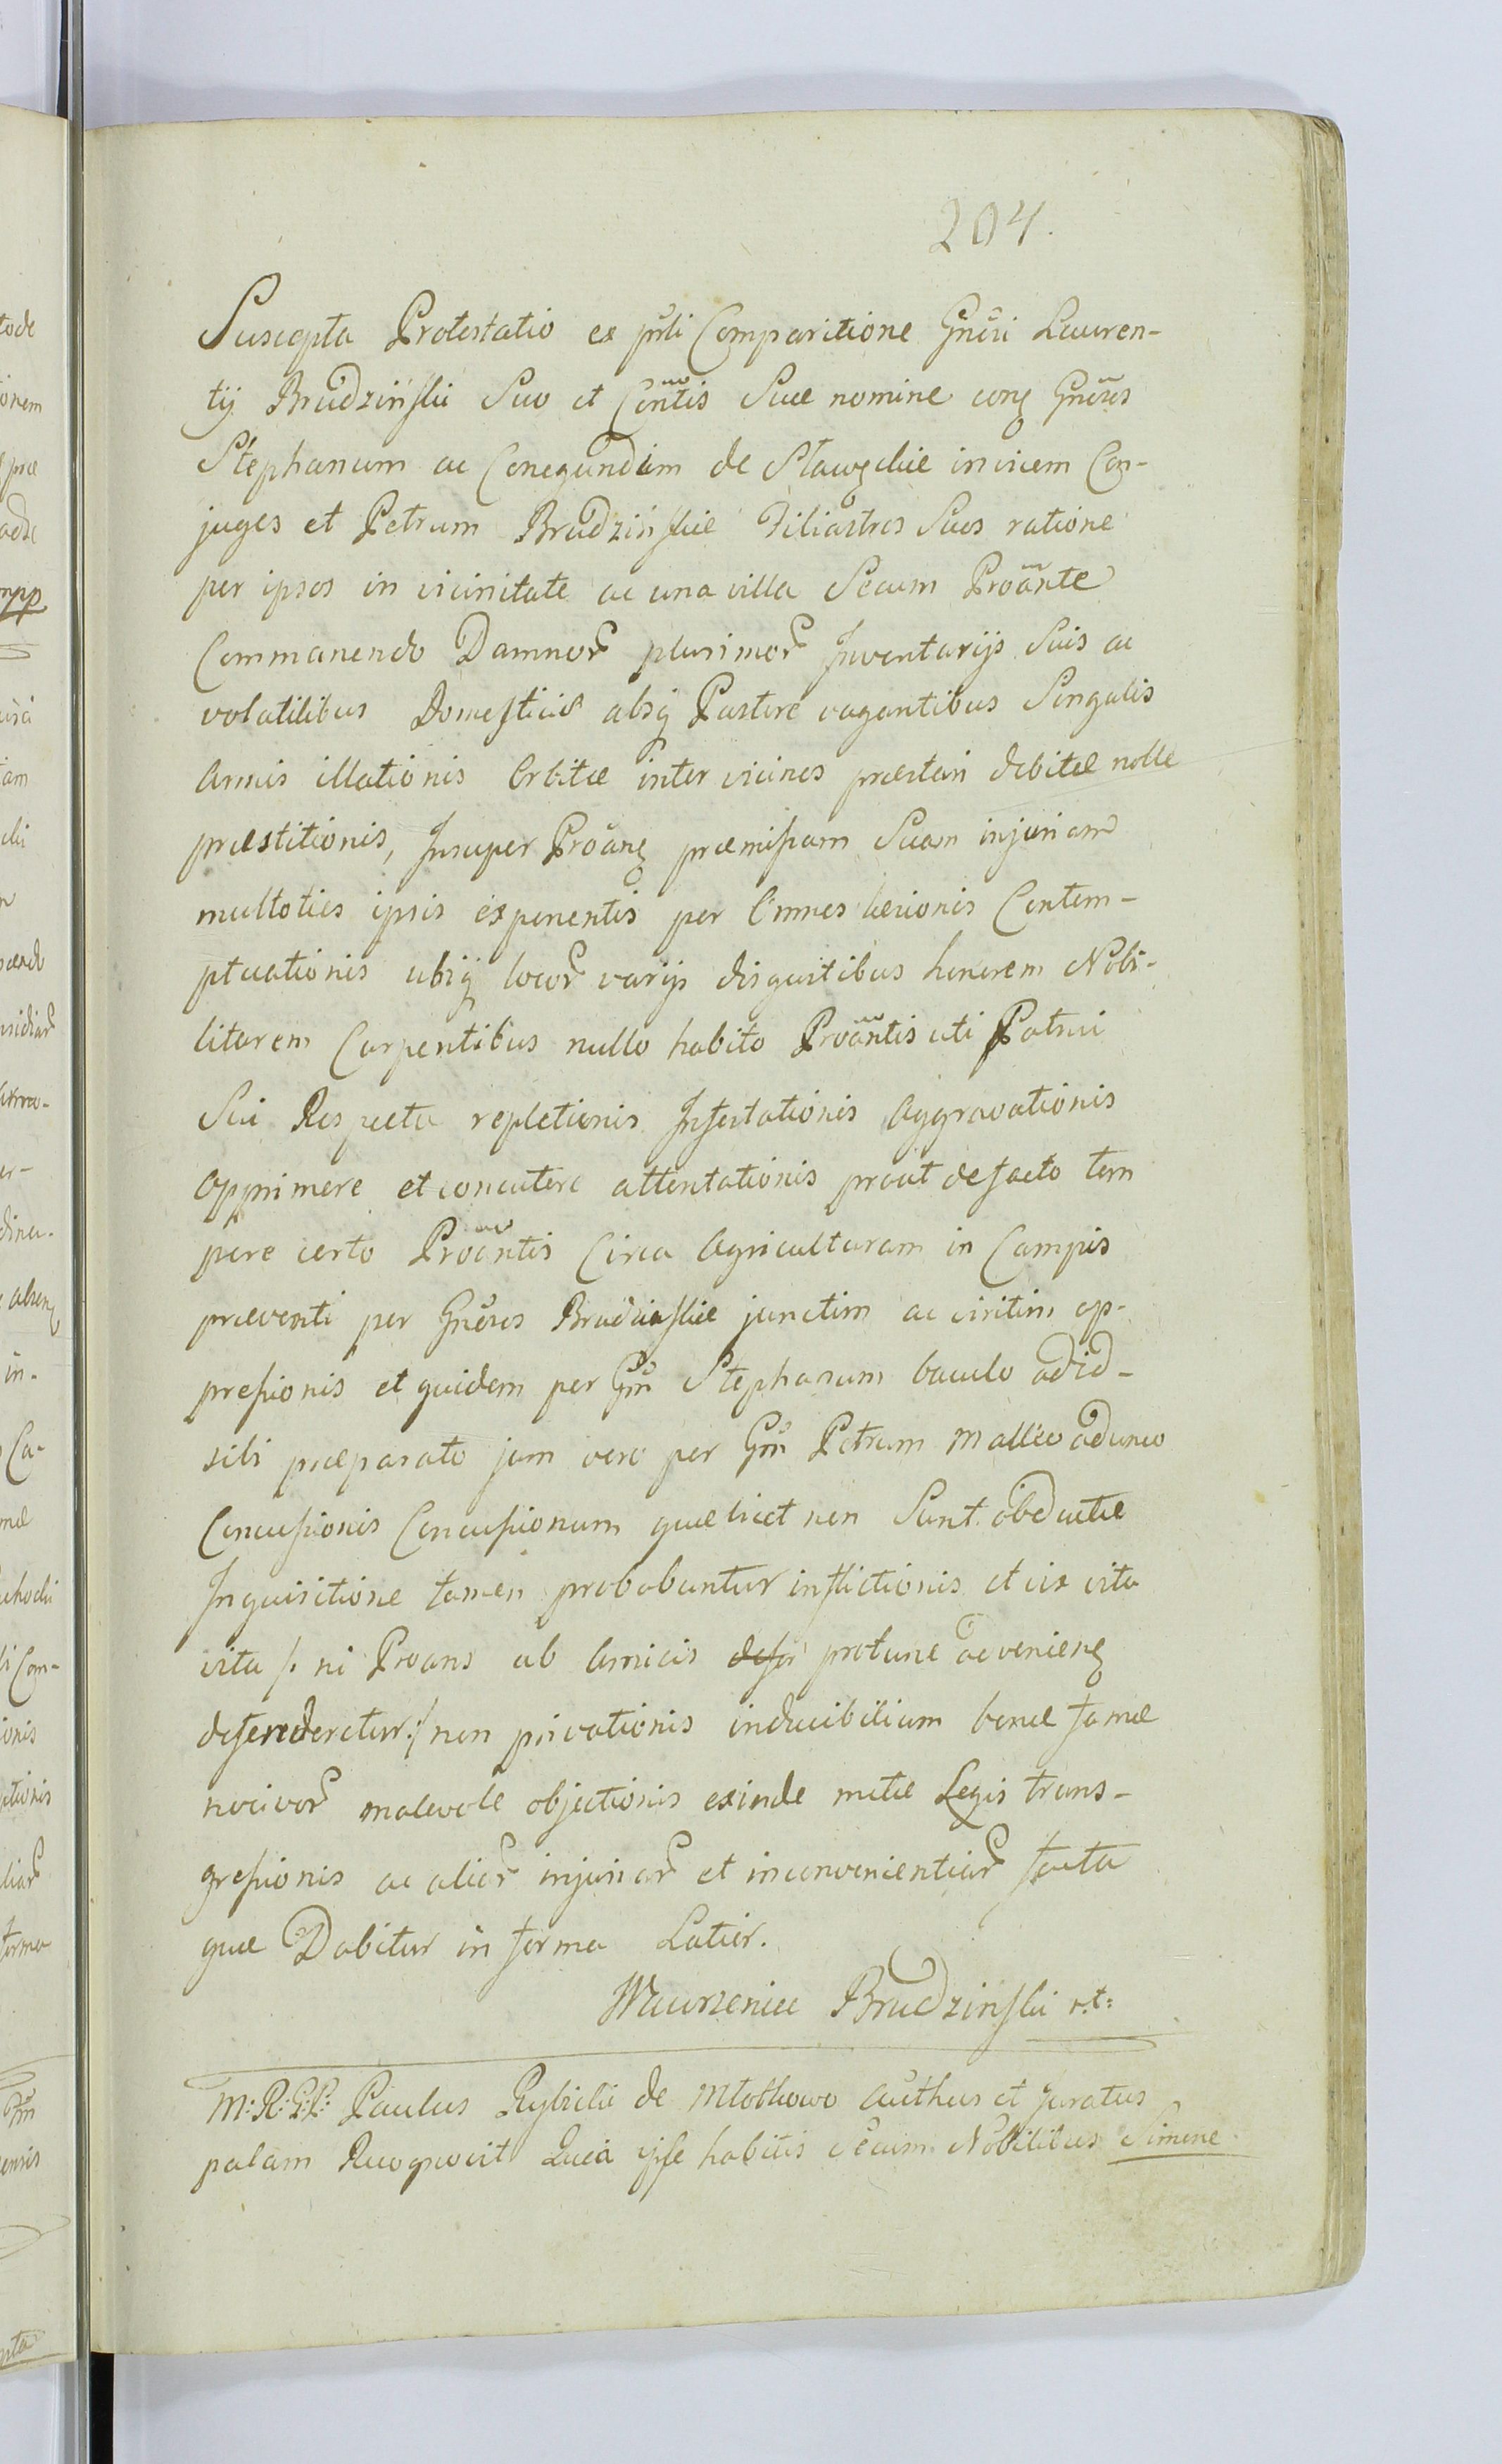 204.
Suscepta Protestatio ex pñli Comparitione Gnõri Lauren-
tij Brudzinski Suo et Cõntis Suæ nomine conq Gnõres
Stephanum ac Conegundim de Sławęckie invicem Con-
juges et Petrum Brudzińskie Filiastros Suos ratione
per ipsos in vicinitate ac una villa Secum Proãnte
Commanendo Damnor plurimor Inventarijs Suis ac
volatilibus Domesticis absq Pastore vagantibus Singulis
Annis illationis Orbitæ inter vicinos præstari debitæ nolle
præstitionis, Insuper Proãnq præmissam Suam injuriam
multoties ipsis exponentis per Omnes Contem-
ptuationis ubiq locor varijs disgustibus honorem Nobi-
litarem Carpentibus nullo habito Proãntis uti Patrui
Sui Respectu repletionis Infestationis Aggravationis
Opprimere et concutere attentationis prout de facto tem
pore certo Proãntis Circa Agriculturam in Campis
præventi per Gnõres Brudzinskie junctim ac viritim op-
pressionis et quidem per Gñm Stephanum baculo ad id-
sibi præparato jam vero per Gñm Petrum Malleo adunco
Concussionis Concussionum quæ licet non Sunt obductæ
Inquisitione tamen probabuntur inflictionis et vix vita
vita /: ni Proans ab Amicis protunc advenienq
defenderetur :/ non privationis inducibilium bonæ famæ
nocivor malevole objectionis exinde metæ Legis trans-
gressionis ac alior injuriar et inconvenientiar facta
quæ Dabitur in forma Latior.
Wawrzeniec Brudzinski
M: R: G: P: Paulus Rybicki de Młotkowo Authus et Juratus
palam Recognovit Quia ipse habitis Secum Nobilibus Simone